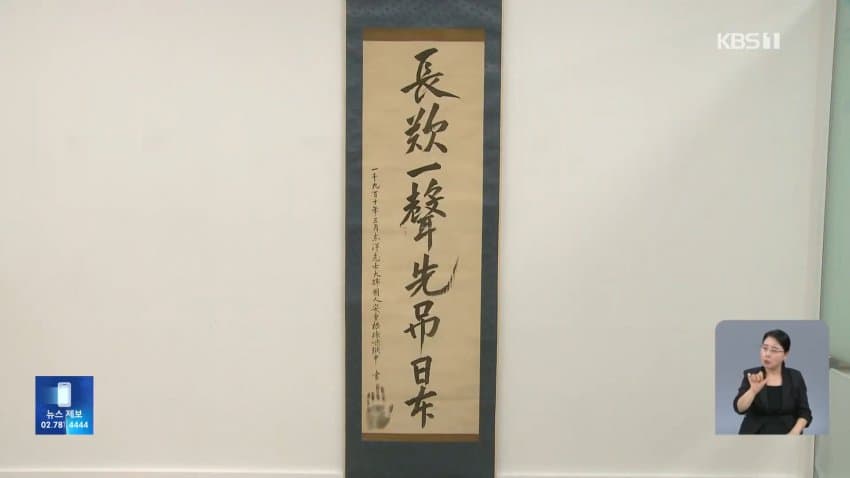 KBS1
長歎一聲先吊日本
一千九百十年三月東洋志士大韓國人安重根旅順獄中 書
뉴스 제보
02.781.4444